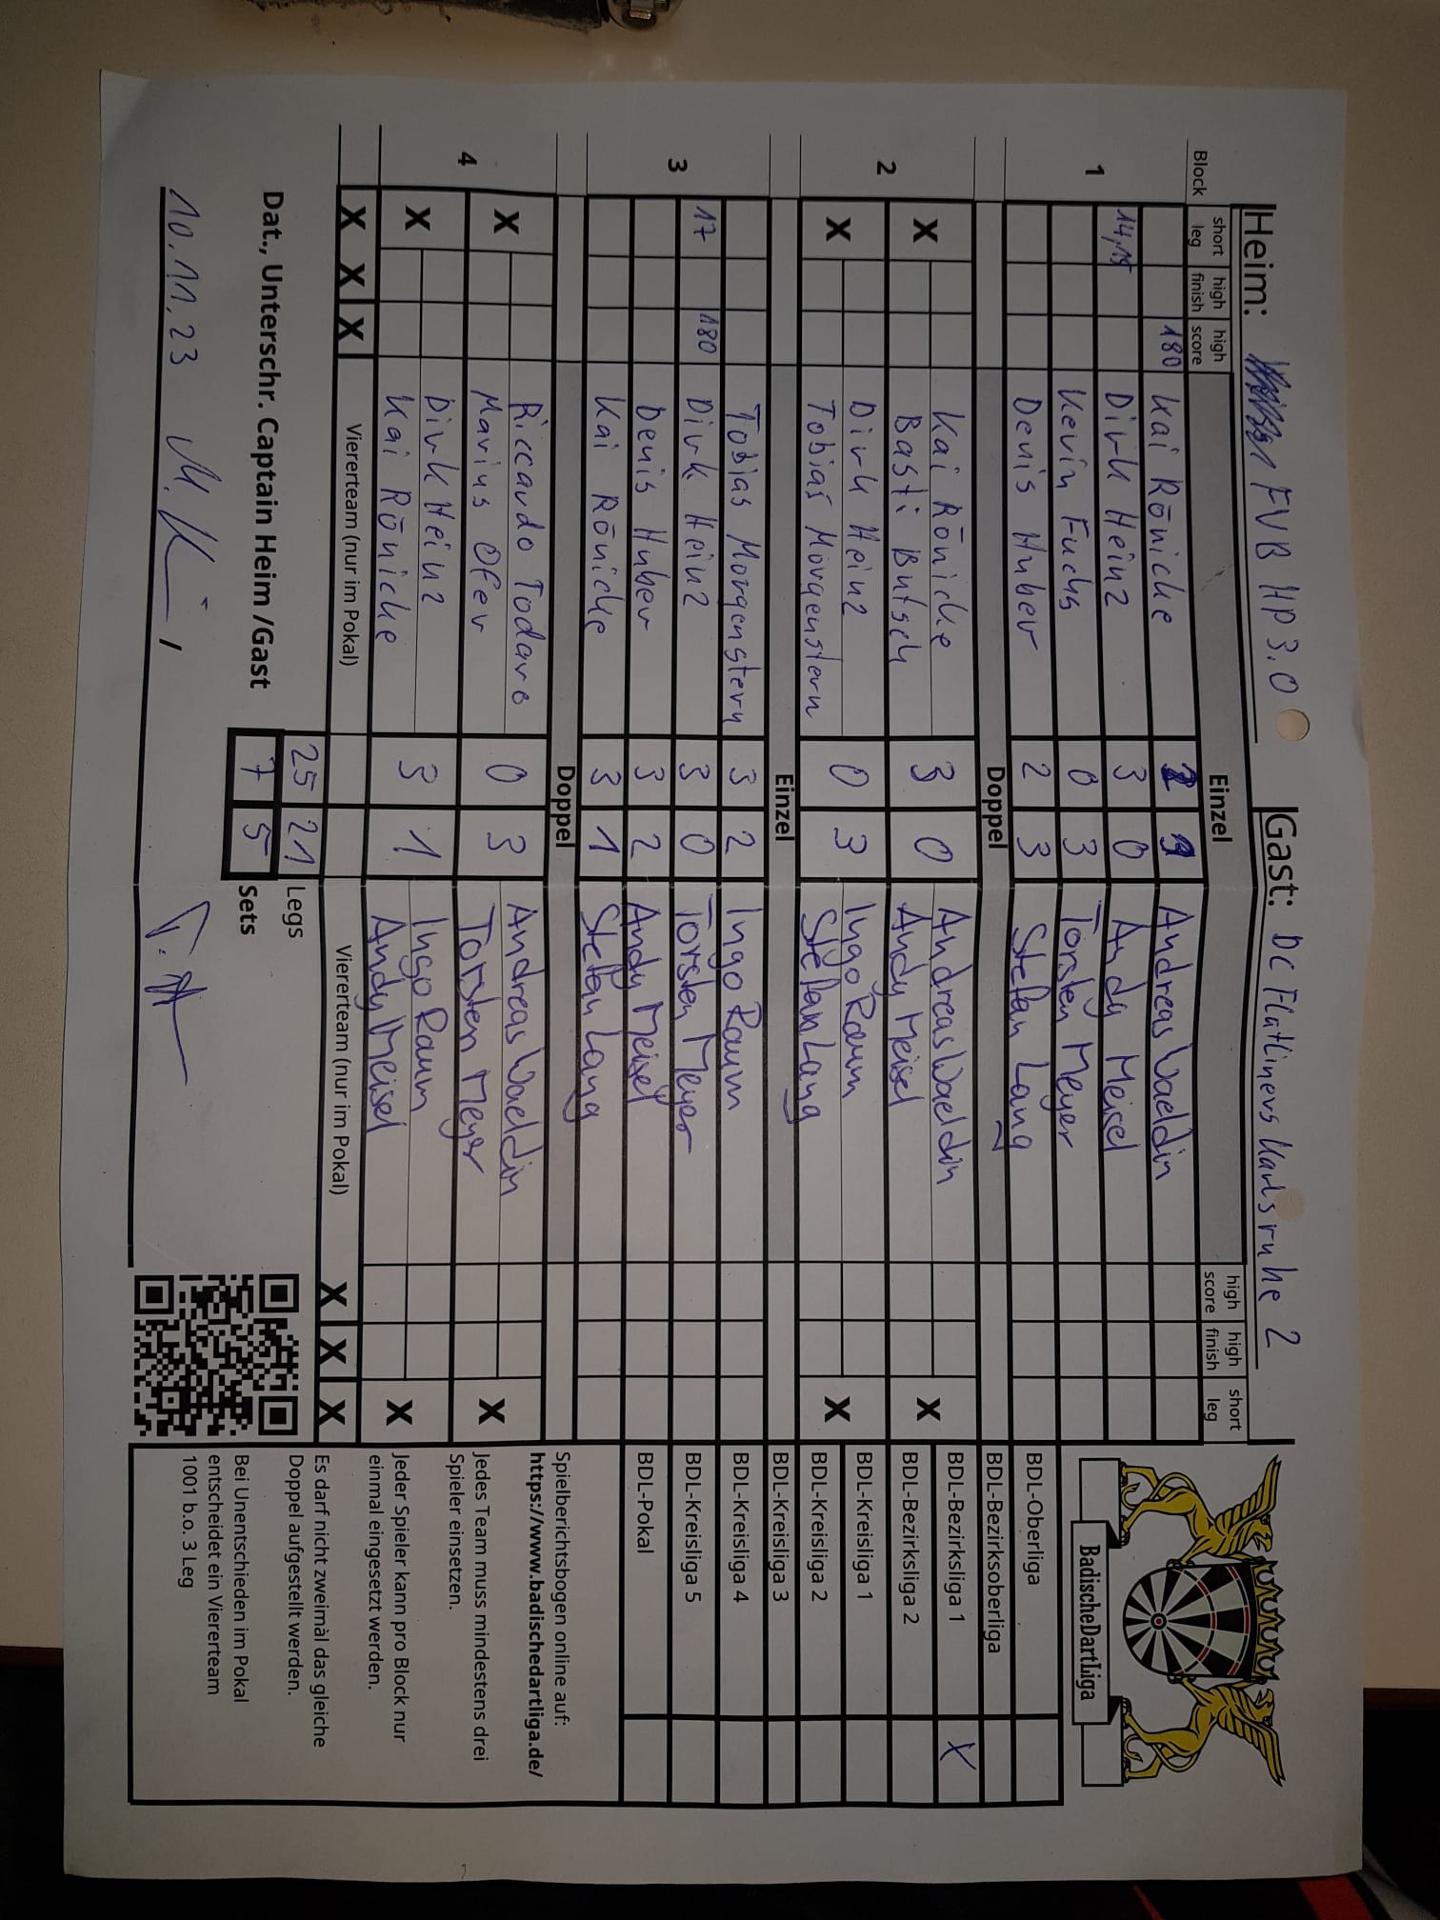 Heim: FVB HP 3.0 Gast: DC Flatliners Karlsruhe 2
Block short leg high finish high score Einzel high score high finish short leg
1
180 Kai Rönicke Andreas Waeldin
14,15 Dirk Heinz 3 0 Andy Meisel
Kevin Fuchs 0 3 Torsten Meyer
Denis Huber 2 3 Stefan Lang
Doppel
2
X Kai Rönicke 3 0 Andreas Waeldin X
Basti Butsch Andy Meisel
X Dirk Heinz 0 3 Ingo Raum X
Tobias Morgenstern Stefan Lang
Einzel
3
Tobias Morgenstern 3 2 Ingo Raum
17 180 Dirk Heinz 3 0 Torsten Meyer
Denis Huber 3 2 Andy Meisel
Kai Rönicke 3 1 Stefan Lang
Doppel
4
X Riccardo Todaro 0 3 Andreas Waeldin X
Marius Ofer Torsten Meyer
X Dirk Heinz 3 1 Ingo Raum X
Kai Rönicke Andy Meisel
X X X Viererteam (nur im Pokal) Viererteam (nur im Pokal) X X X
25 21 Legs
Dat., Unterschr. Captain Heim /Gast 7 5 Sets
10.11.23
BadischeDartLiga
BDL-Oberliga
BDL-Bezirksoberliga
BDL-Bezirksliga 1 X
BDL-Bezirksliga 2
BDL-Kreisliga 1
BDL-Kreisliga 2
BDL-Kreisliga 3
BDL-Kreisliga 4
BDL-Kreisliga 5
BDL-Pokal
Spielberichtsbogen online auf:
https://www.badischedartliga.de/
Jedes Team muss mindestens drei
Spieler einsetzen.
Jeder Spieler kann pro Block nur
einmal eingesetzt werden.
Es darf nicht zweimal das gleiche
Doppel aufgestellt werden.
Bei Unentschieden im Pokal
entscheidet ein Viererteam
1001 b.o. 3 Leg